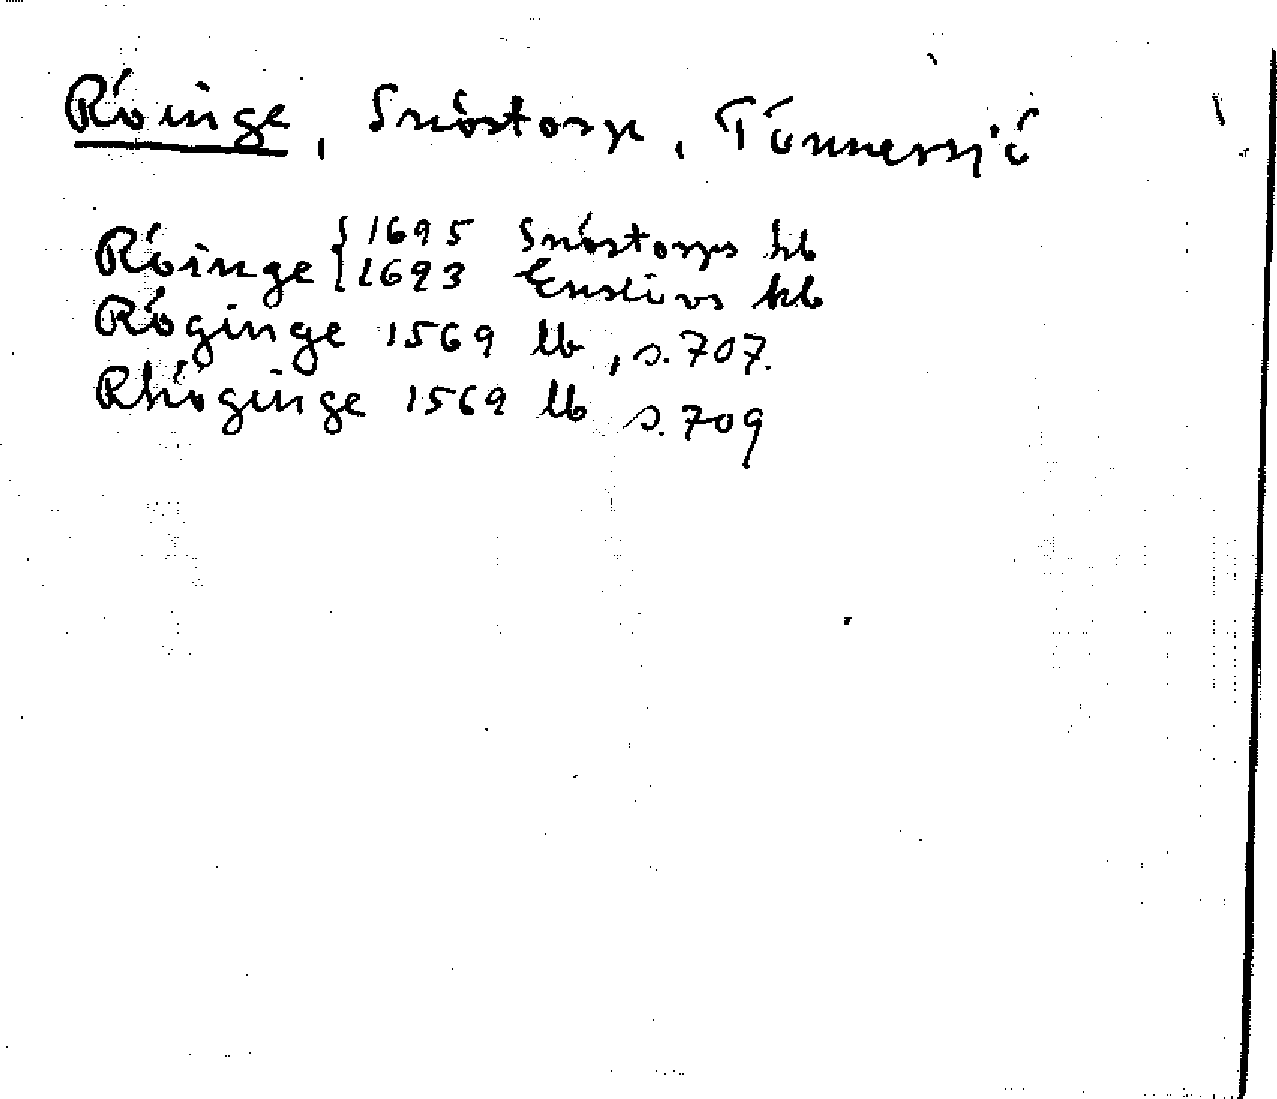 Röinge, Snöstorp, Tönnersjö
Röinge { 1695 Snöstorps kb
1693 Enslövs kb
Röginge 1569 lb, s. 707.
Rhöginge 1569 lb s. 709